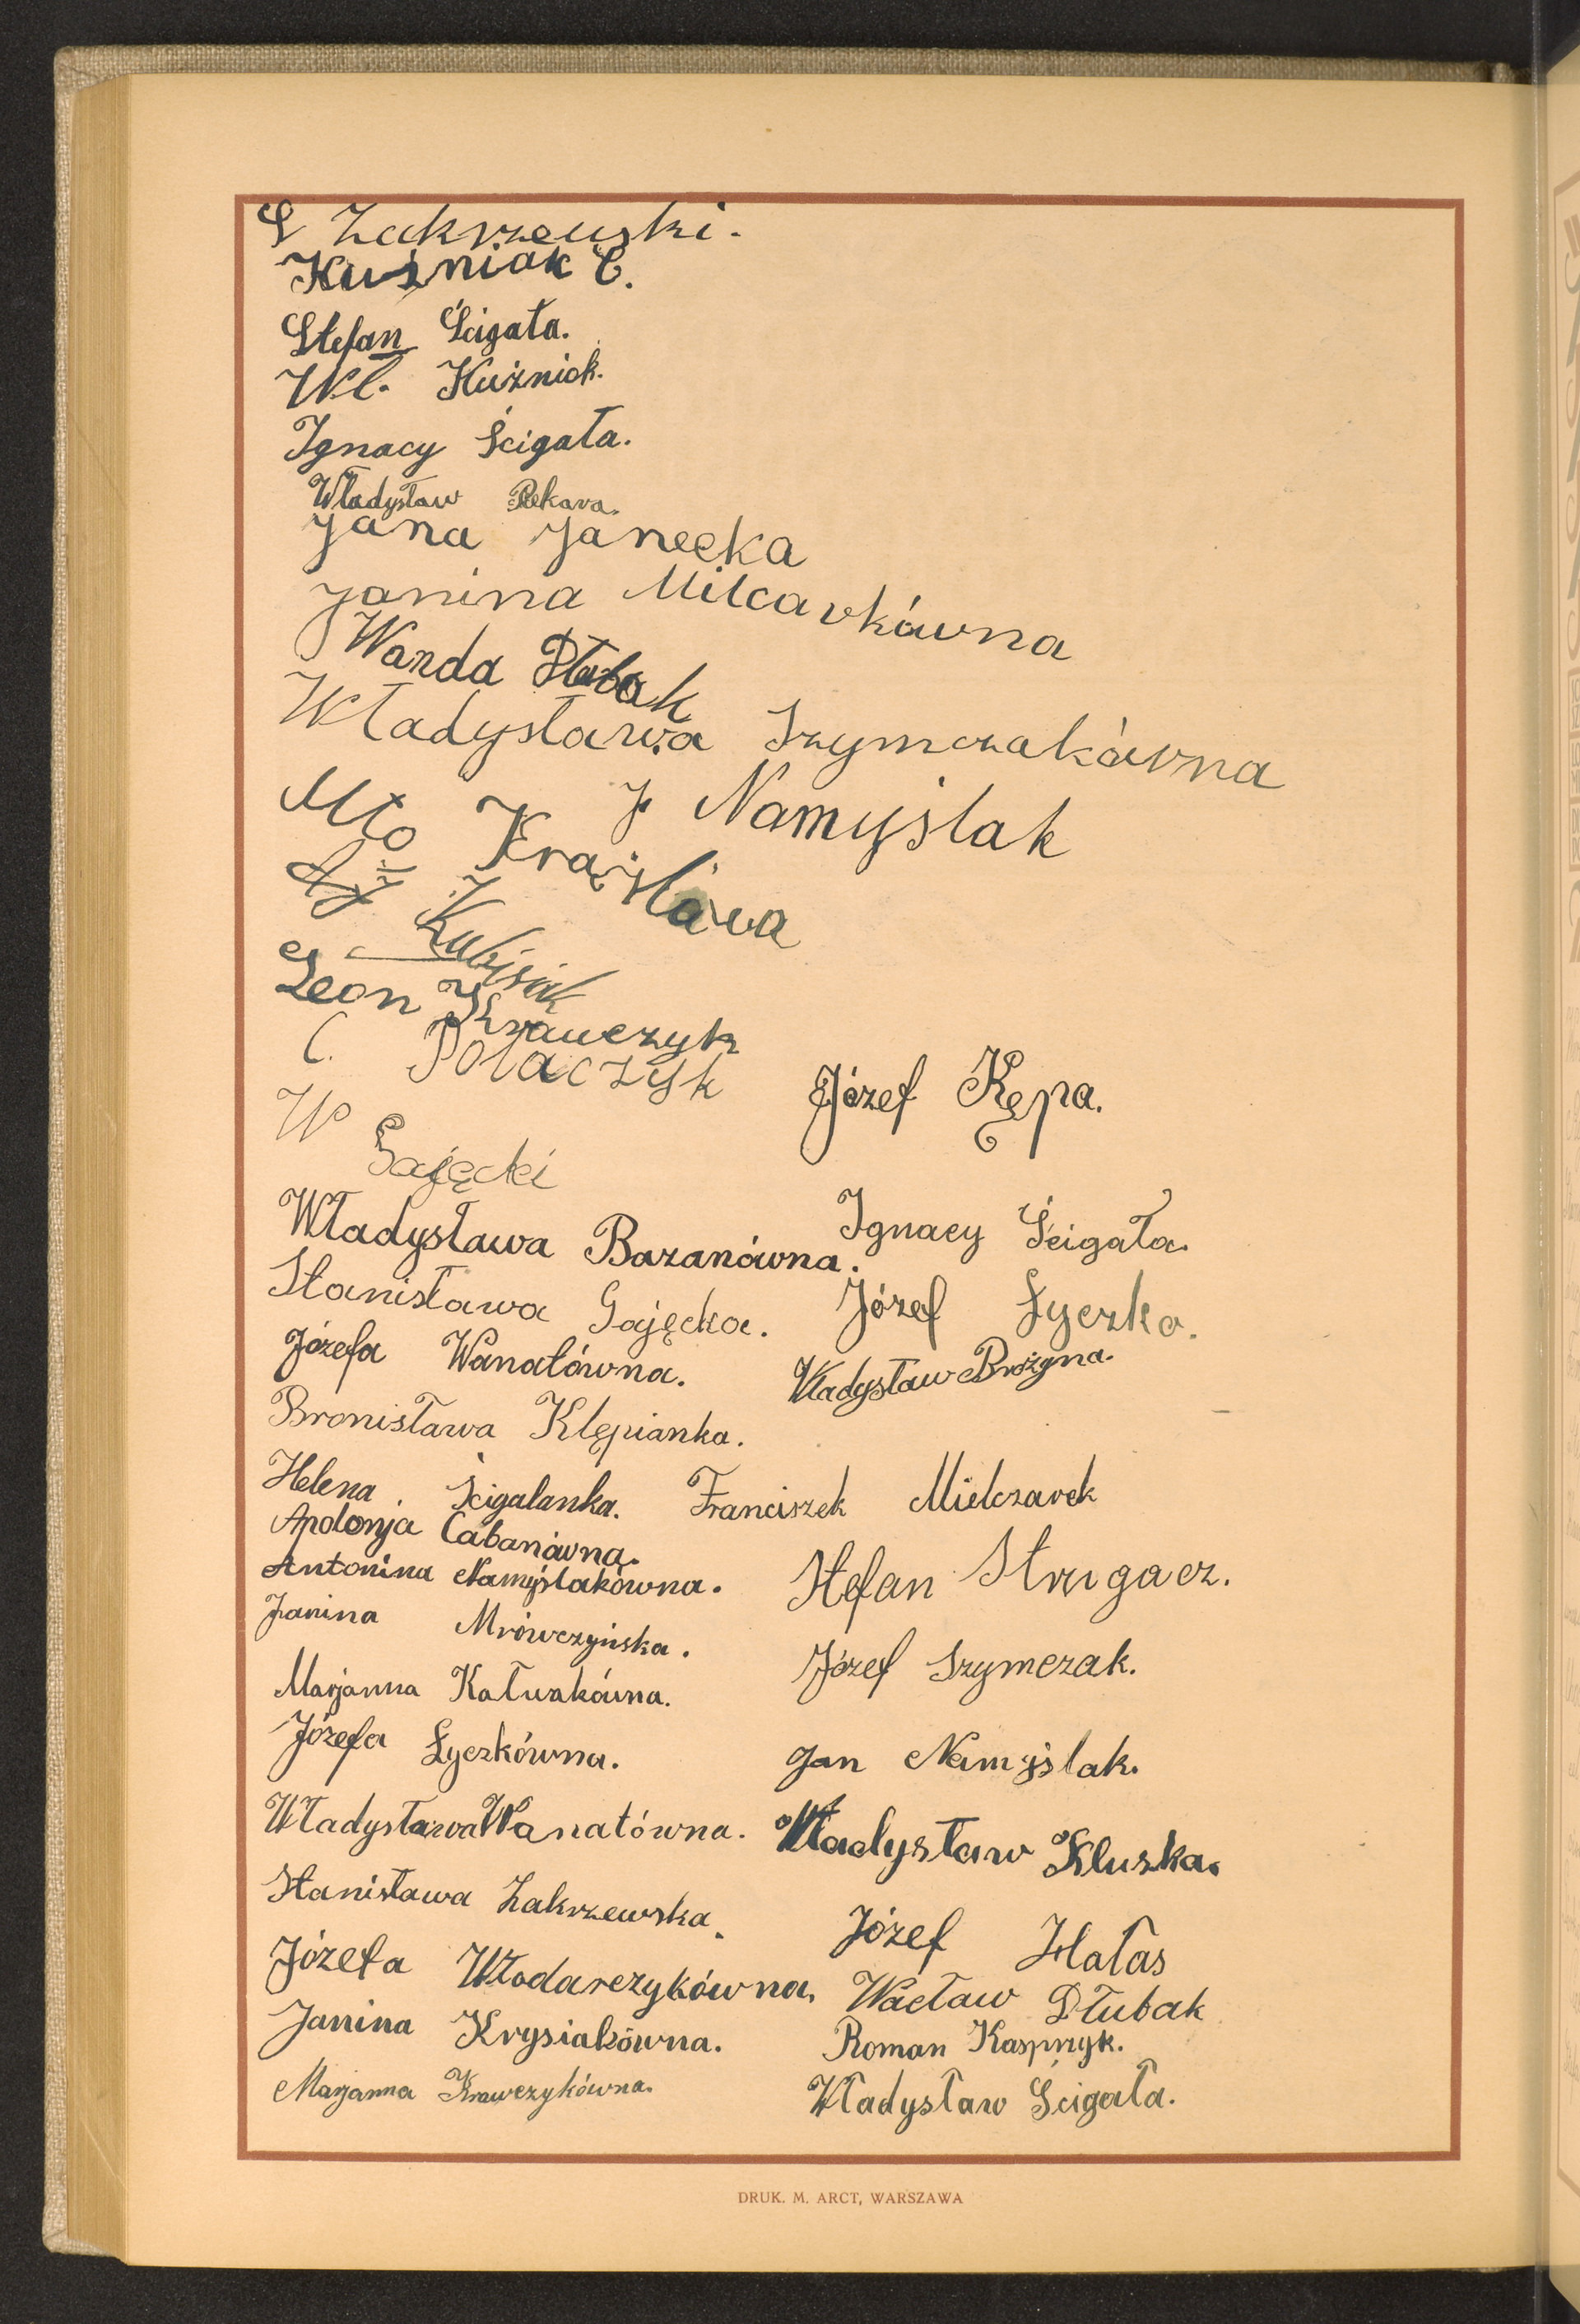 S Zakrzewski.
Kuśniak C.
Stefan Ścigała.
Wł. Kuźniak.
Ignacy Ścigała.
Władysław Rekara.
Jana Janecka
Janina Milcarkówna
Wanda Dłubak
Władysława Szymczakówna
J Namyślak
Kubisiak
Leon Krawczyk
C. Polaczyk
W Gajęcki
Władysława Bazanówna.
Stanisława Gajęcka.
Józefa Wanatówna.
Bronisława Klępianka.
Helena Ścigalanka.
Apolonja Cabanówna.
Antonina Namyślakówna.
Janina Mrówczyńska.
Marjanna Kałwakówna.
Józefa Łyczkówna.
Władysława Wanatówna.
Stanisława Zakrzewska.
Józefa Włodarczykówna.
Janina Krysiakówna.
Marjanna Krawczykówna.
Józef Kępa.
Ignacy Ścigała.
Józef Łyczko.
Władysław Brożyna.
Franciszek Mielczarek
Stefan Strugacz.
Józef Szymczak.
Jan Namyślak.
Władysław Kluska.
Józef Hałas
Wacław Dłubak
Roman Kasprzyk.
Władysław Ścigała.
DRUK. M. ARCT, WARSZAWA